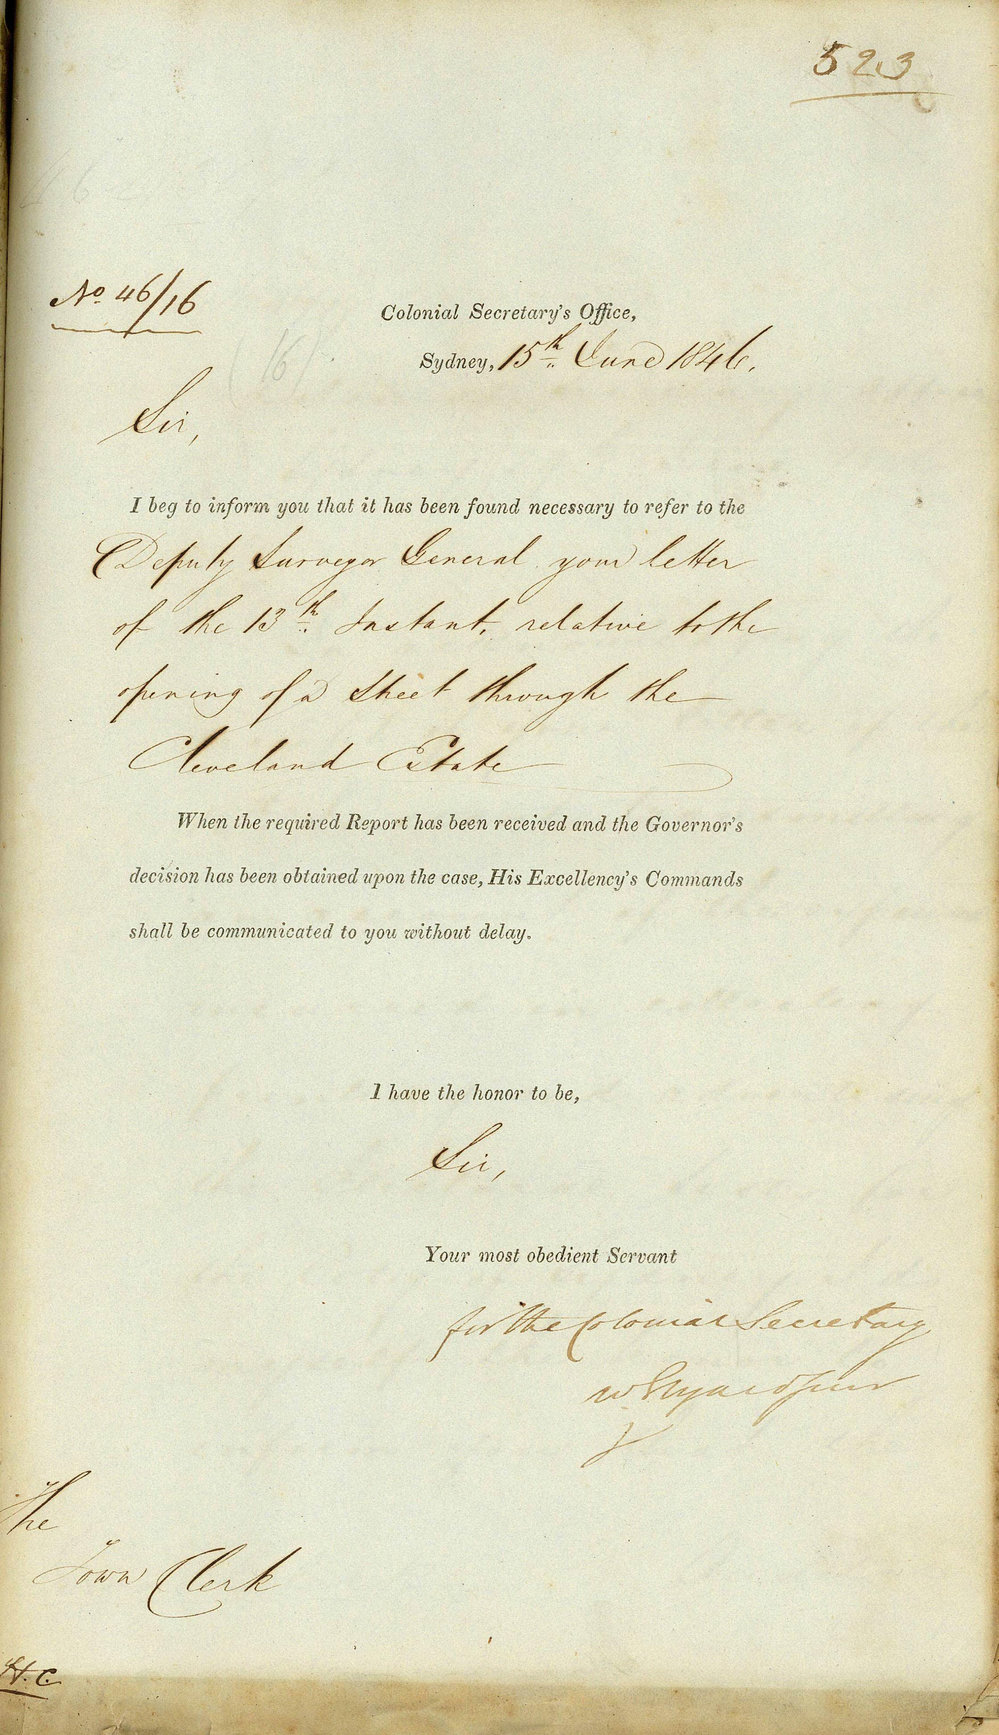 523
No 46/16
Colonial Secretary's Office,
(16)
Sydney, 15th June 1846.
Sir,
I beg to inform you that it has been found necessary to refer to the
Deputy Surveyor General your letter
of the 13th Instant, relative to the
opening of a Street through the
Cleveland Estate
When the required Report has been received and the Governor's
decision has been obtained upon the case, His Excellency's Commands
shall be communicated to you without delay.
I have the honor to be,
Sir,
Your most obedient Servant
for the Colonial Secretary
The
Town Clerk
H.C.